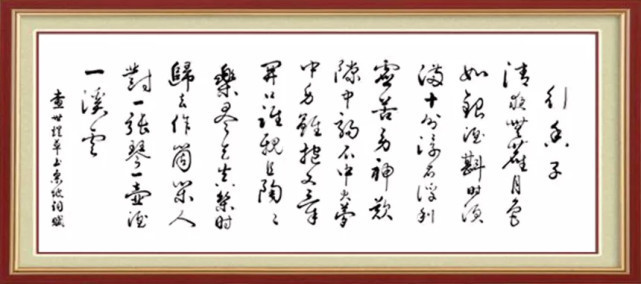 行香子
清夜無塵月色
如銀酒斟時須
滿十分浮名浮利
虛苦勞神歎
隙中駒石中火夢
中身雖抱文章
開口誰親且陶〻
樂盡天真幾時
歸去作箇閑人
對一張琴一壺酒
一溪雲
世 草书东坡词賦